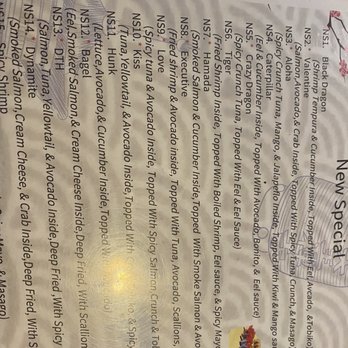 New Special
NS1. Black Dragon
(Shrimp Tempura & Cucumber Inside, Topped With Eel, Avocado, & Tobiko
NS2. Valentine
(Salmon, Avocado, & Crab Inside, Topped With Spicy Tuna, Crunch, & Masago
NS3. Aloha
(Spicy Crunch Tuna, Mango, & Jalapeño Inside, Topped With Kiwi & Mango sau
NS4. Caterpillar
(Eel & Cucumber Inside, Topped With Avocado, Bonito, & Eel sauce)
NS5. Crazy Dragon
(Spicy Crunch Tuna, Topped With Eel & Eel Sauce)
NS6. Tiger
(Fried Shrimp Inside, Topped With Boiled Shrimp, Eel sauce, & Spicy Mayo
NS7. Hamada
(Smoked Salmon & Cucumber Inside, Topped With Smoke Salmon & Avo
NS8. Executive
(Fried shrimp & Avocado inside, Topped With Tuna, Avocado, Scallions,
NS9. Love
(Spicy tuna & Avocado Inside, Topped With Spicy Salmon Crunch & Tob
NS10 Kiss
(Tuna, Yellowtail, & Avocado Inside, Topped With & Spicy
NS11. Hunk
(Lettuce, Avocado, & Cucumber Inside, Topped W
NS12. Bagel
(Eel, Smoked Salmon, & Cream Cheese Inside, Deep Fried, With Scallion
NS13. DTH
(Salmon, Tuna, Yellowtail, & Avocado Inside, Deep Fried, With Spicy
NS14. Dynamite
(Smoked Salmon, Cream Cheese, & Crab Inside, Deep Fried, With S
Spicy Shrimp
Mayo, & Masago)